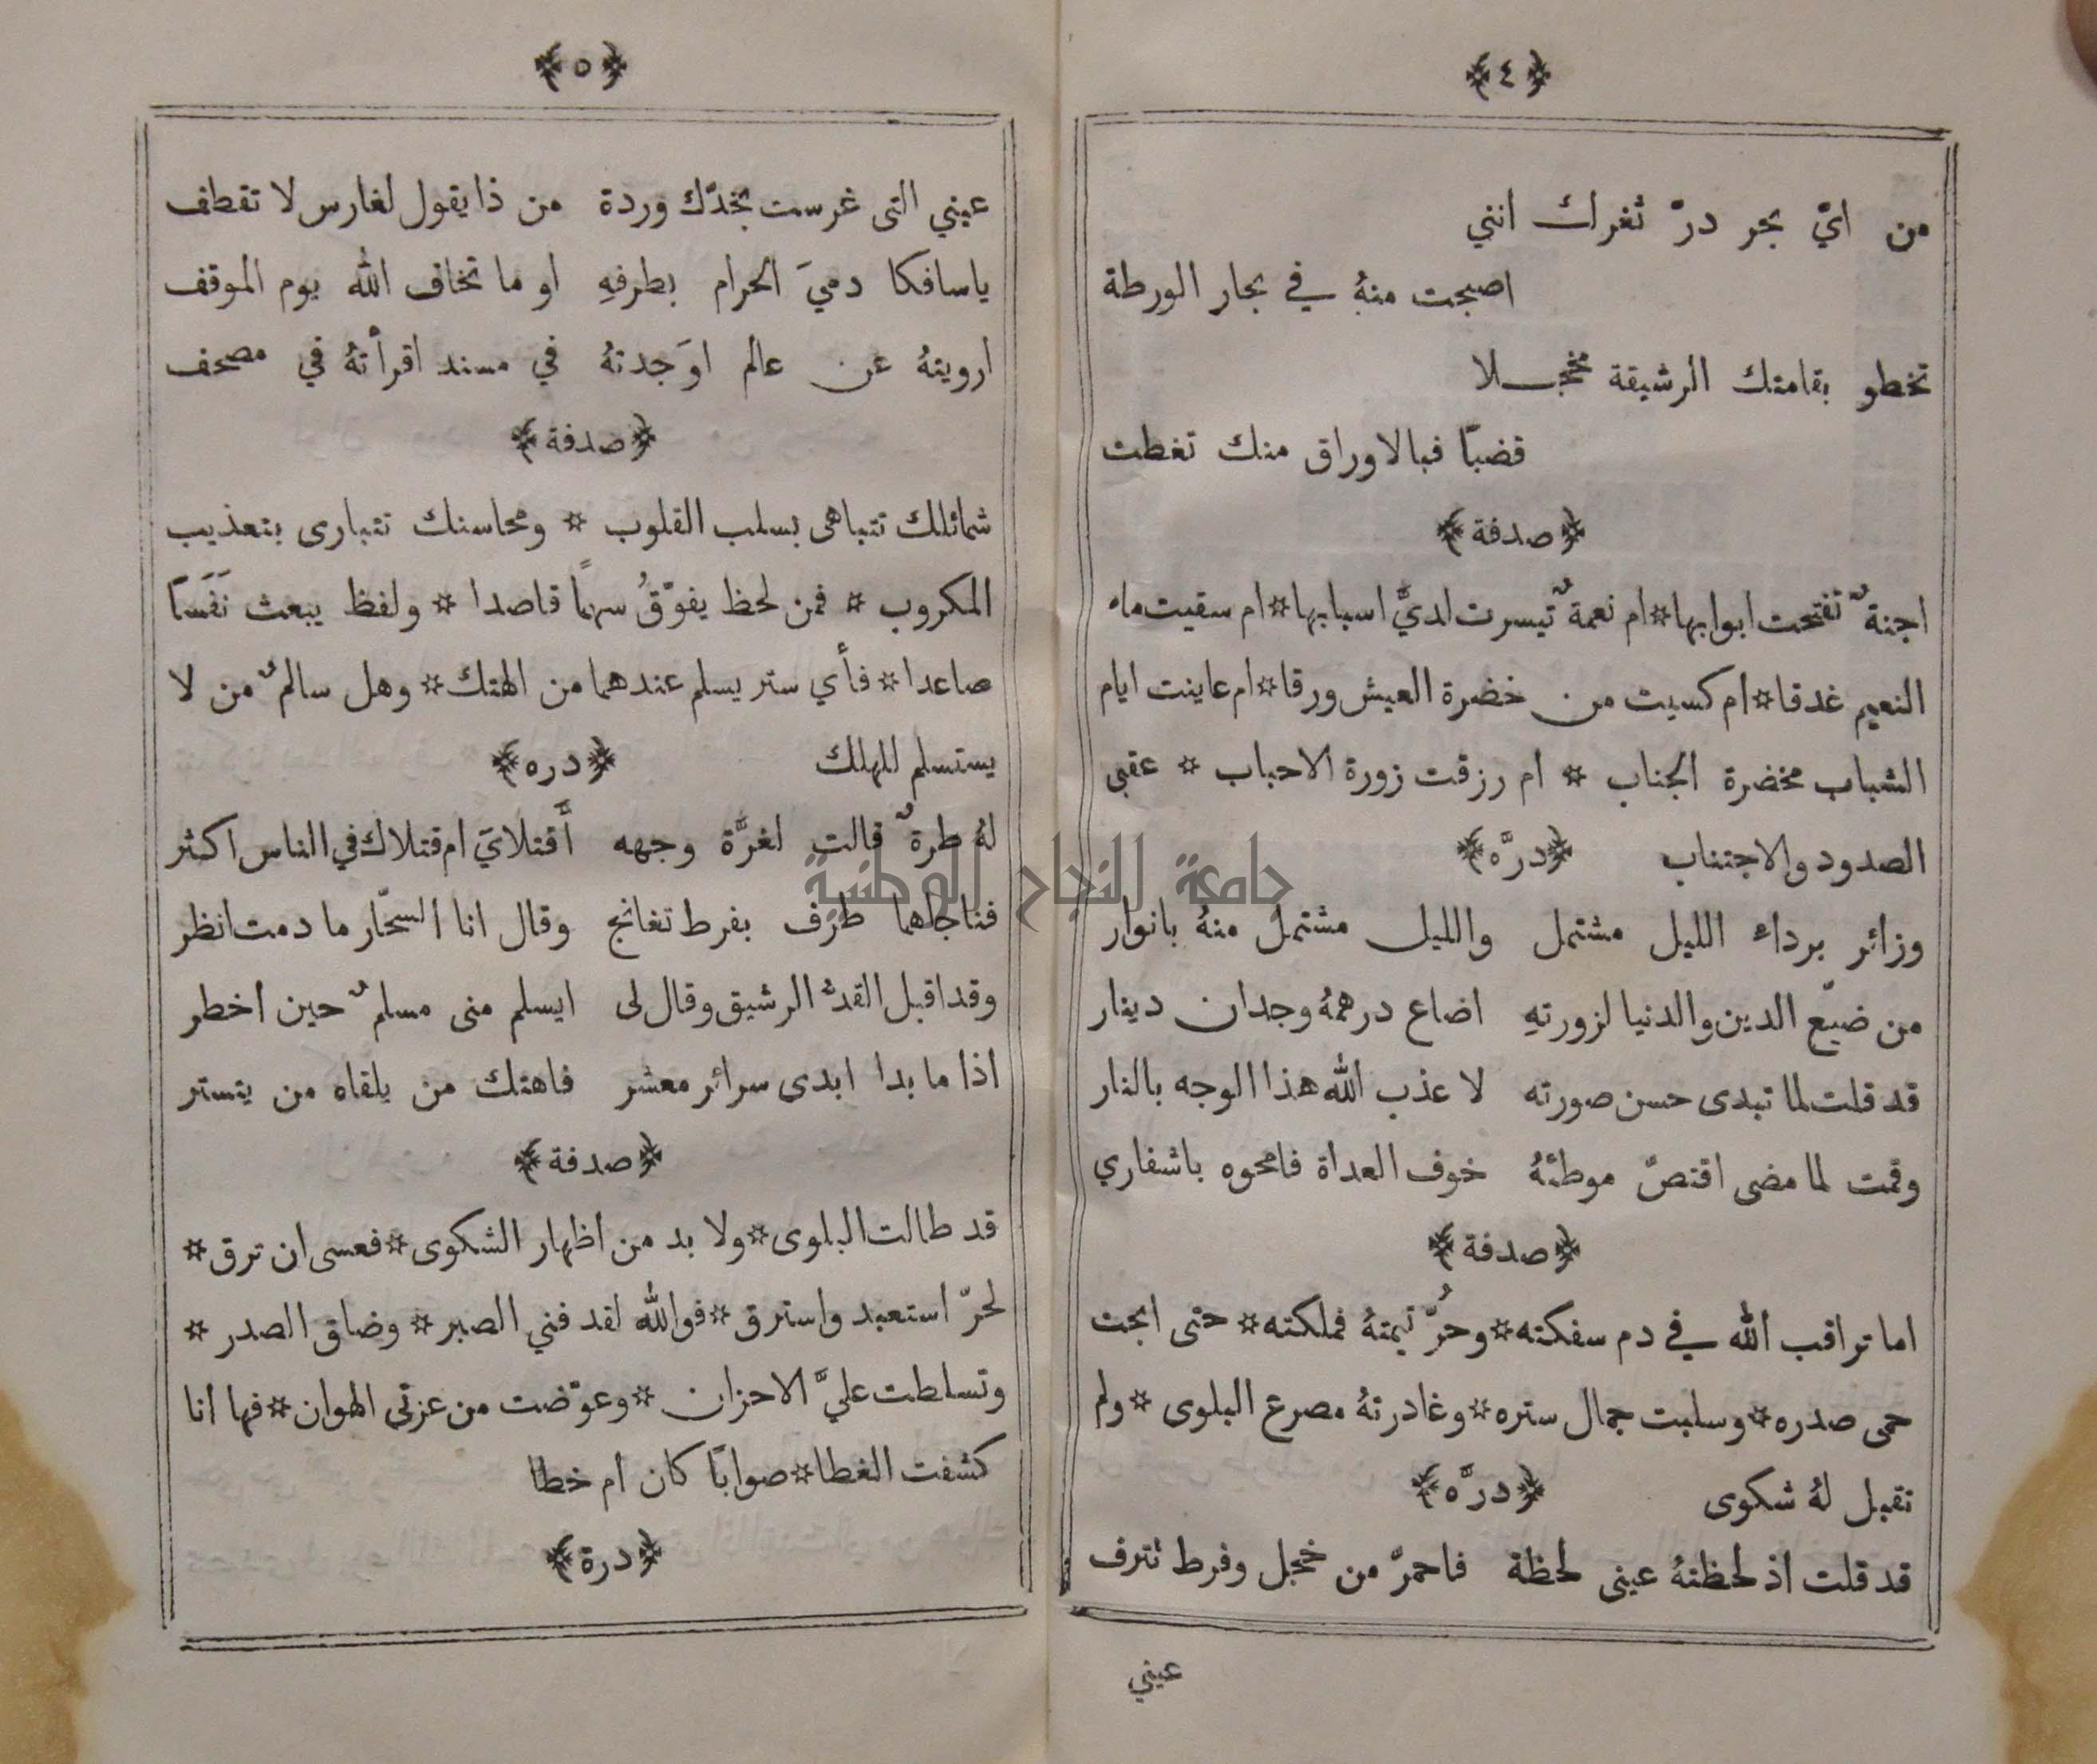 ﴿٤﴾
من ايّ بحر درّ ثغرك انني
اصبحت منهُ في بحار الورطة
تخطو بقامتك الرشيقة مخجـلا
قضبًا فبالاوراق منك تغطت
﴿صدفة﴾
اجنةٌ تفتحت ابوابها * ام نعمةٌ تيسرت لديَّ اسبابها * ام سقيت ماء
النعيم غدقا * ام كسيت من خضرة العيش ورقا * ام عاينت ايام
الشباب مخضرة الجناب * ام رزقت زورة الاحباب * عقبى
الصدود والاجتناب ﴿درَّه﴾
وزائر برداء الليل مشتمل والليل مشتمل منهُ بانوار
من ضيّع الدين والدنيا لزورتهِ اضاع درهمهُ وجدان دينار
قد قلت لما تبدى حسن صورته لا عذب الله هذا الوجه بالنار
وقمت لما مضى اقتصّ موطئهُ خوف العداة فامحوه باشفاري
﴿صدفة﴾
اما تراقب الله في دم سفكته * وحُرّ تيمتهُ فملكته * حتى ابحت
حمى صدره * وسلبت جمال ستره * وغادرتهُ مصرع البلوى * ولم
تقبل لهُ شكوى ﴿درَّه﴾
قد قلت اذ لحظتهُ عينى لحظة فاحمرّ من خجل وفرط تترف
عيني
﴿٥﴾
عيني التى غرست بخدّك وردة من ذا يقول لغارس لا تقطف
ياسافكا دميَ الحرام بطرفهِ او ما تخاف الله يوم الموقف
ارويتهُ عن عالم اوَجدتهُ في مسند اقرأتهُ في مصحف
﴿صدفة﴾
شمائلك تتباهى بسلب القلوب * ومحاسنك تتبارى بتعذيب
المكروب * فمن لحظ يفوّقُ سهمًا قاصدا * ولفظ يبعث نَفَسًا
صاعدا * فأي ستر يسلم عندهما من الهتك * وهل سالمٌ من لا
يستسلم للهلك ﴿دره﴾
لهُ طرةٌ قالت لغرَّة وجهه أَقتلايَ ام قتلاك في الناس اكثر
فناجاهما طرف بفرط تغانج وقال انا السحّار ما دمت انظر
وقد اقبل القدّ الرشيق وقال لى ايسلم منى مسلمٌ حين اخطر
اذا ما بدا ابدى سرائر معشر فاهتك من يلقاه من يتستر
﴿صدفة﴾
قد طالت البلوى * ولا بد من اظهار الشكوى * فعسى ان ترق *
لحرّ استعبد واسترق * فوالله لقد فني الصبر * وضاق الصدر *
وتسلطت عليَّ الاحزان * وعوّضت من عزتى الهوان * فها انا
كشفت الغطا * صوابًا كان ام خطا
﴿درة﴾
جامعة النجاح الوطنية